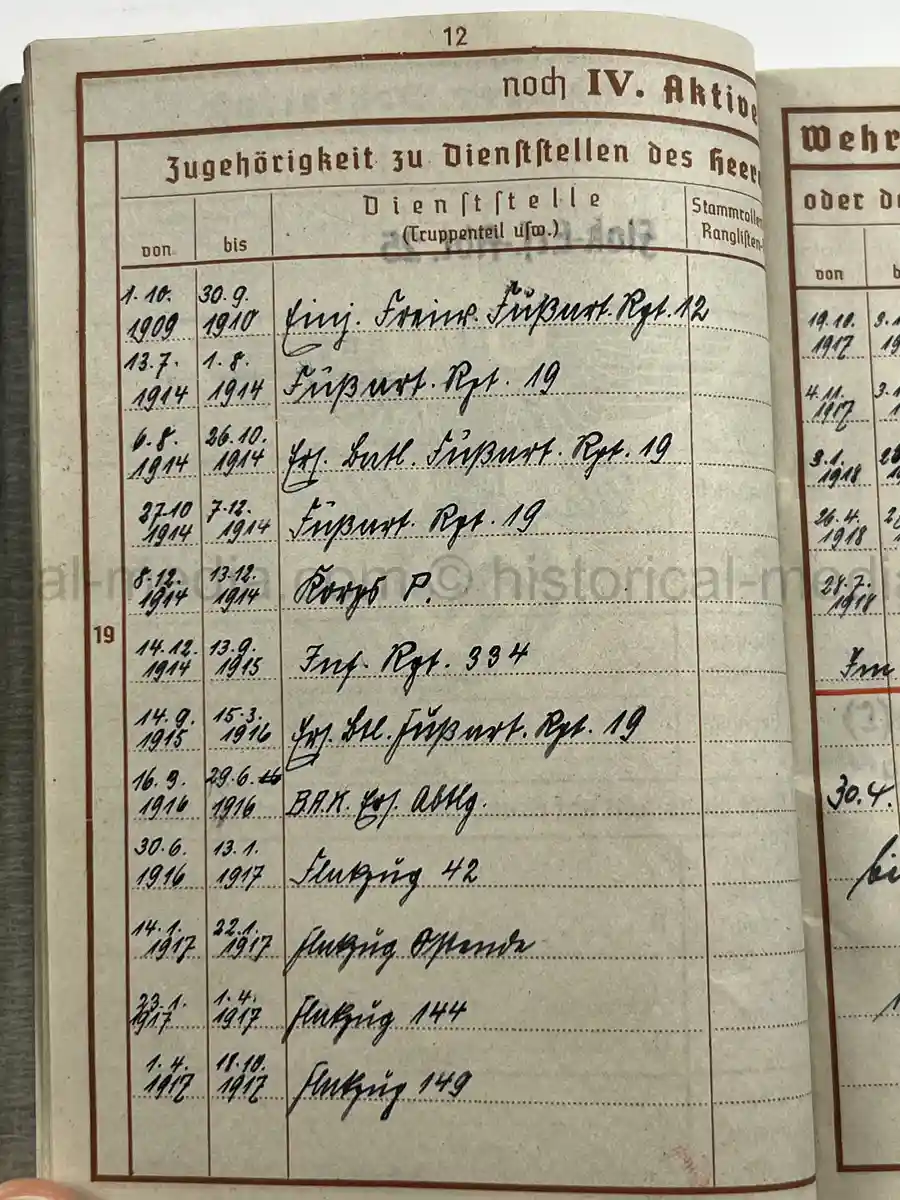 12
noch IV. Aktive
Zugehörigkeit zu Dienststellen des Heere
von
bis
Dienststelle
(Truppenteil usw.)
Stammrollen
Ranglisten-
19
1.10. 1909 30.9. 1910 Einj. Freiw. Fußart. Rgt. 12
13.7. 1914 1.8. 1914 Fußart. Rgt. 19
6.8. 1914 26.10. 1914 Ers. Batl. Fußart. Rgt. 19
27.10 1914 7.12. 1914 Fußart. Rgt. 19
8.12. 1914 13.12. 1914 Korps P.
14.12. 1914 13.9. 1915 Inf. Rgt. 334
14.9. 1915 15.3. 1916 Ers. Btl. Fußart. Rgt. 19
16.3. 1916 29.6. 1916 B.A.K. Ers. Abtlg.
30.6. 1916 13.1. 1917 Flakzug 42
14.1. 1917 22.1. 1917 Flakzug Ostende
23.1. 1917 1.4. 1917 Flakzug 144
1.4. 1917 18.10. 1917 Flakzug 149
cal-media.com © historical-medi
Wehr
oder de
von
b
19.10. 1917
4.11. 1917
3.1. 1918
26.4. 1918
28.7. 1918
Im
30.4.
bi